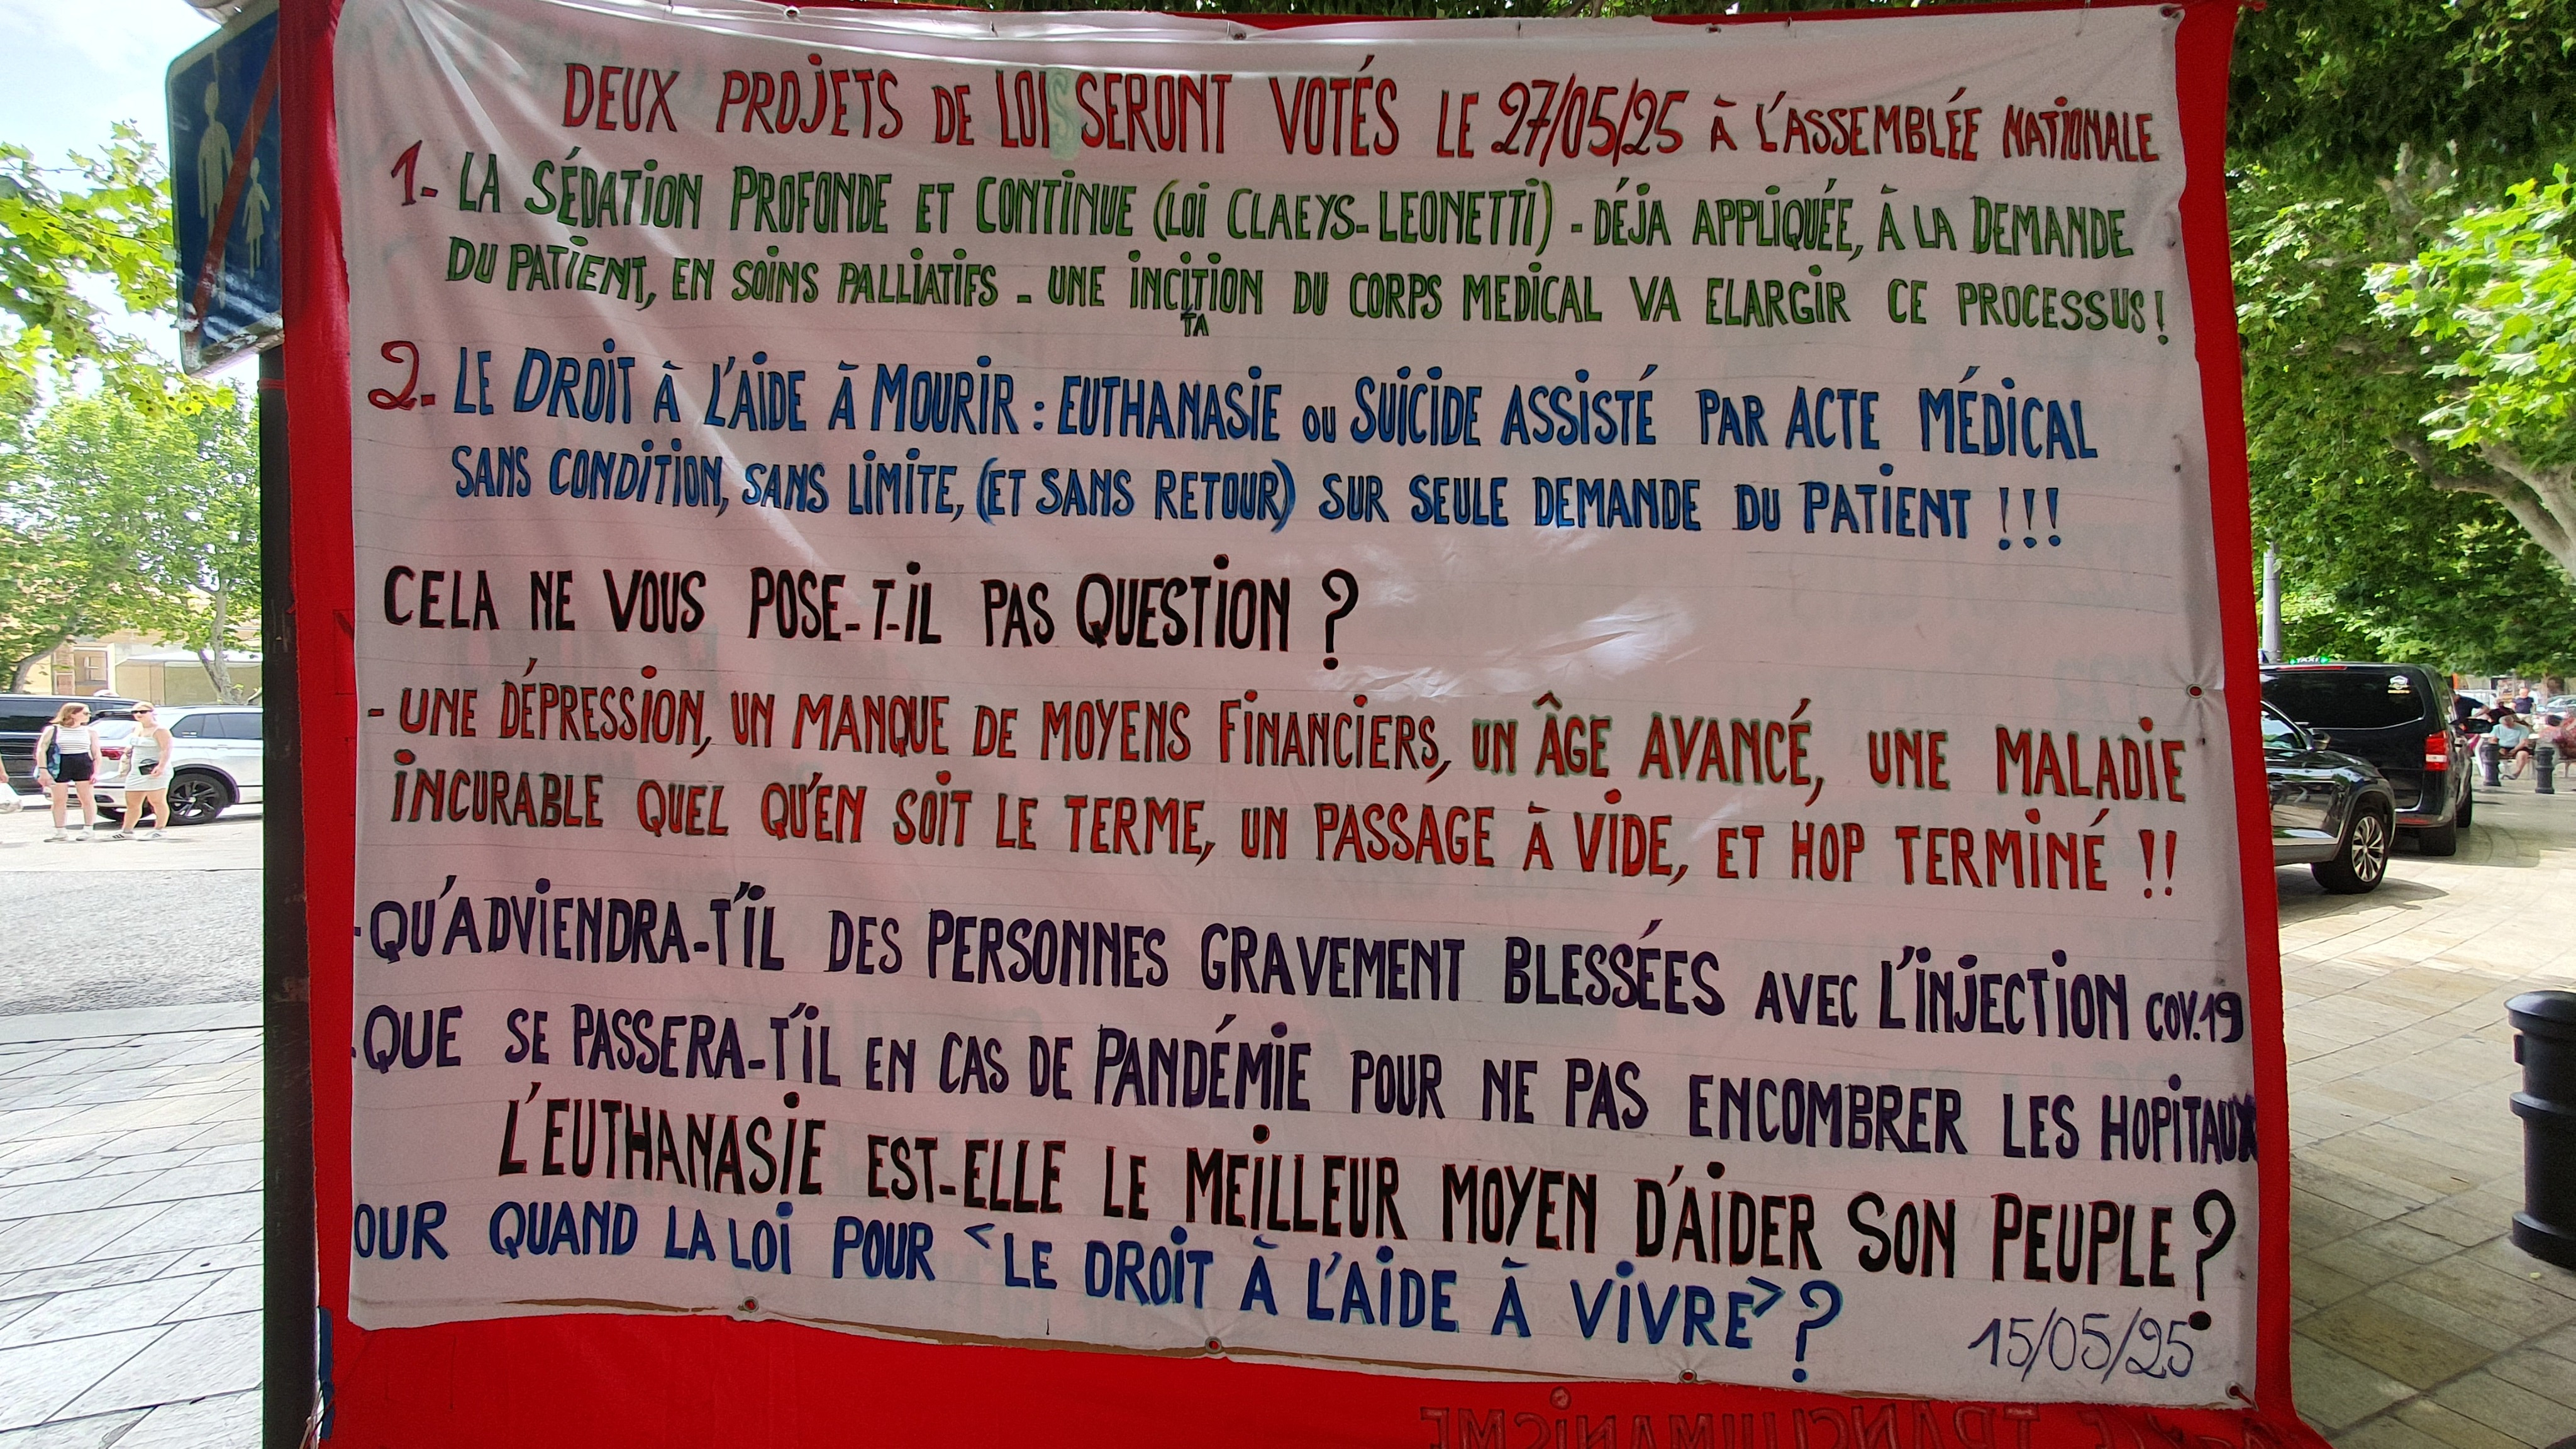 DEUX PROJETS DE LOIS SERONT VOTÉS LE 27/05/25 À L'ASSEMBLÉE NATIONALE
1- LA SÉDATION PROFONDE ET CONTINUE (LOI CLAEYS-LEONETTI) - DÉJA APPLIQUÉE, À LA DEMANDE
DU PATIENT, EN SOINS PALLIATIFS - UNE INCITION DU CORPS MEDICAL VA ELARGIR CE PROCESSUS!
TA
2- LE DROIT À L'AIDE À MOURIR : EUTHANASIE OU SUICIDE ASSISTÉ PAR ACTE MÉDICAL
SANS CONDITION, SANS LIMITE, (ET SANS RETOUR) SUR SEULE DEMANDE DU PATIENT !!!
CELA NE VOUS POSE-T-IL PAS QUESTION ?
- UNE DÉPRESSION, UN MANQUE DE MOYENS FINANCIERS, UN ÂGE AVANCÉ, UNE MALADIE
INCURABLE QUEL QU'EN SOIT LE TERME, UN PASSAGE À VIDE, ET HOP TERMINÉ !!
-QU'ADVIENDRA-T'IL DES PERSONNES GRAVEMENT BLESSÉES AVEC L'INJECTION COV.19
-QUE SE PASSERA-T'IL EN CAS DE PANDÉMIE POUR NE PAS ENCOMBRER LES HOPITAUX
L'EUTHANASIE EST-ELLE LE MEILLEUR MOYEN D'AIDER SON PEUPLE ?
OUR QUAND LA LOI POUR <LE DROIT À L'AIDE À VIVRE> ?
15/05/25
TAXI